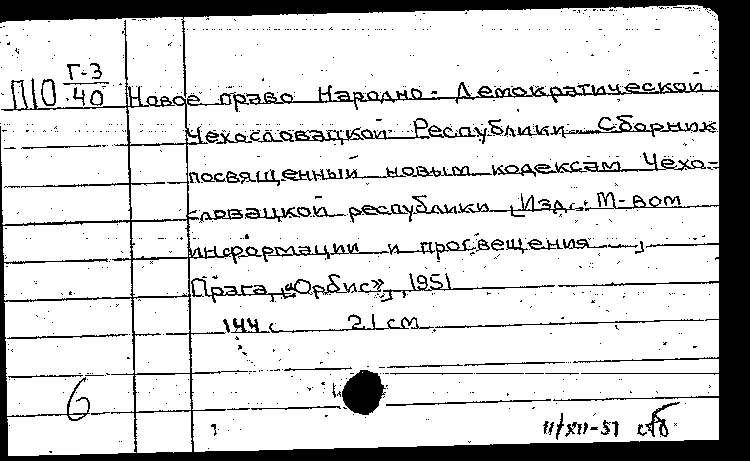 П10 Г-3/40 Новое право Народно-Демократической
Чехословацкой Республики Сборник
посвященный новым кодексам Чехо-
словацкой республики [Изд.: М-вом
информации и просвещения]
Прага, [«Орбис»], 1951
144 с 21 см
6
11/XII-51